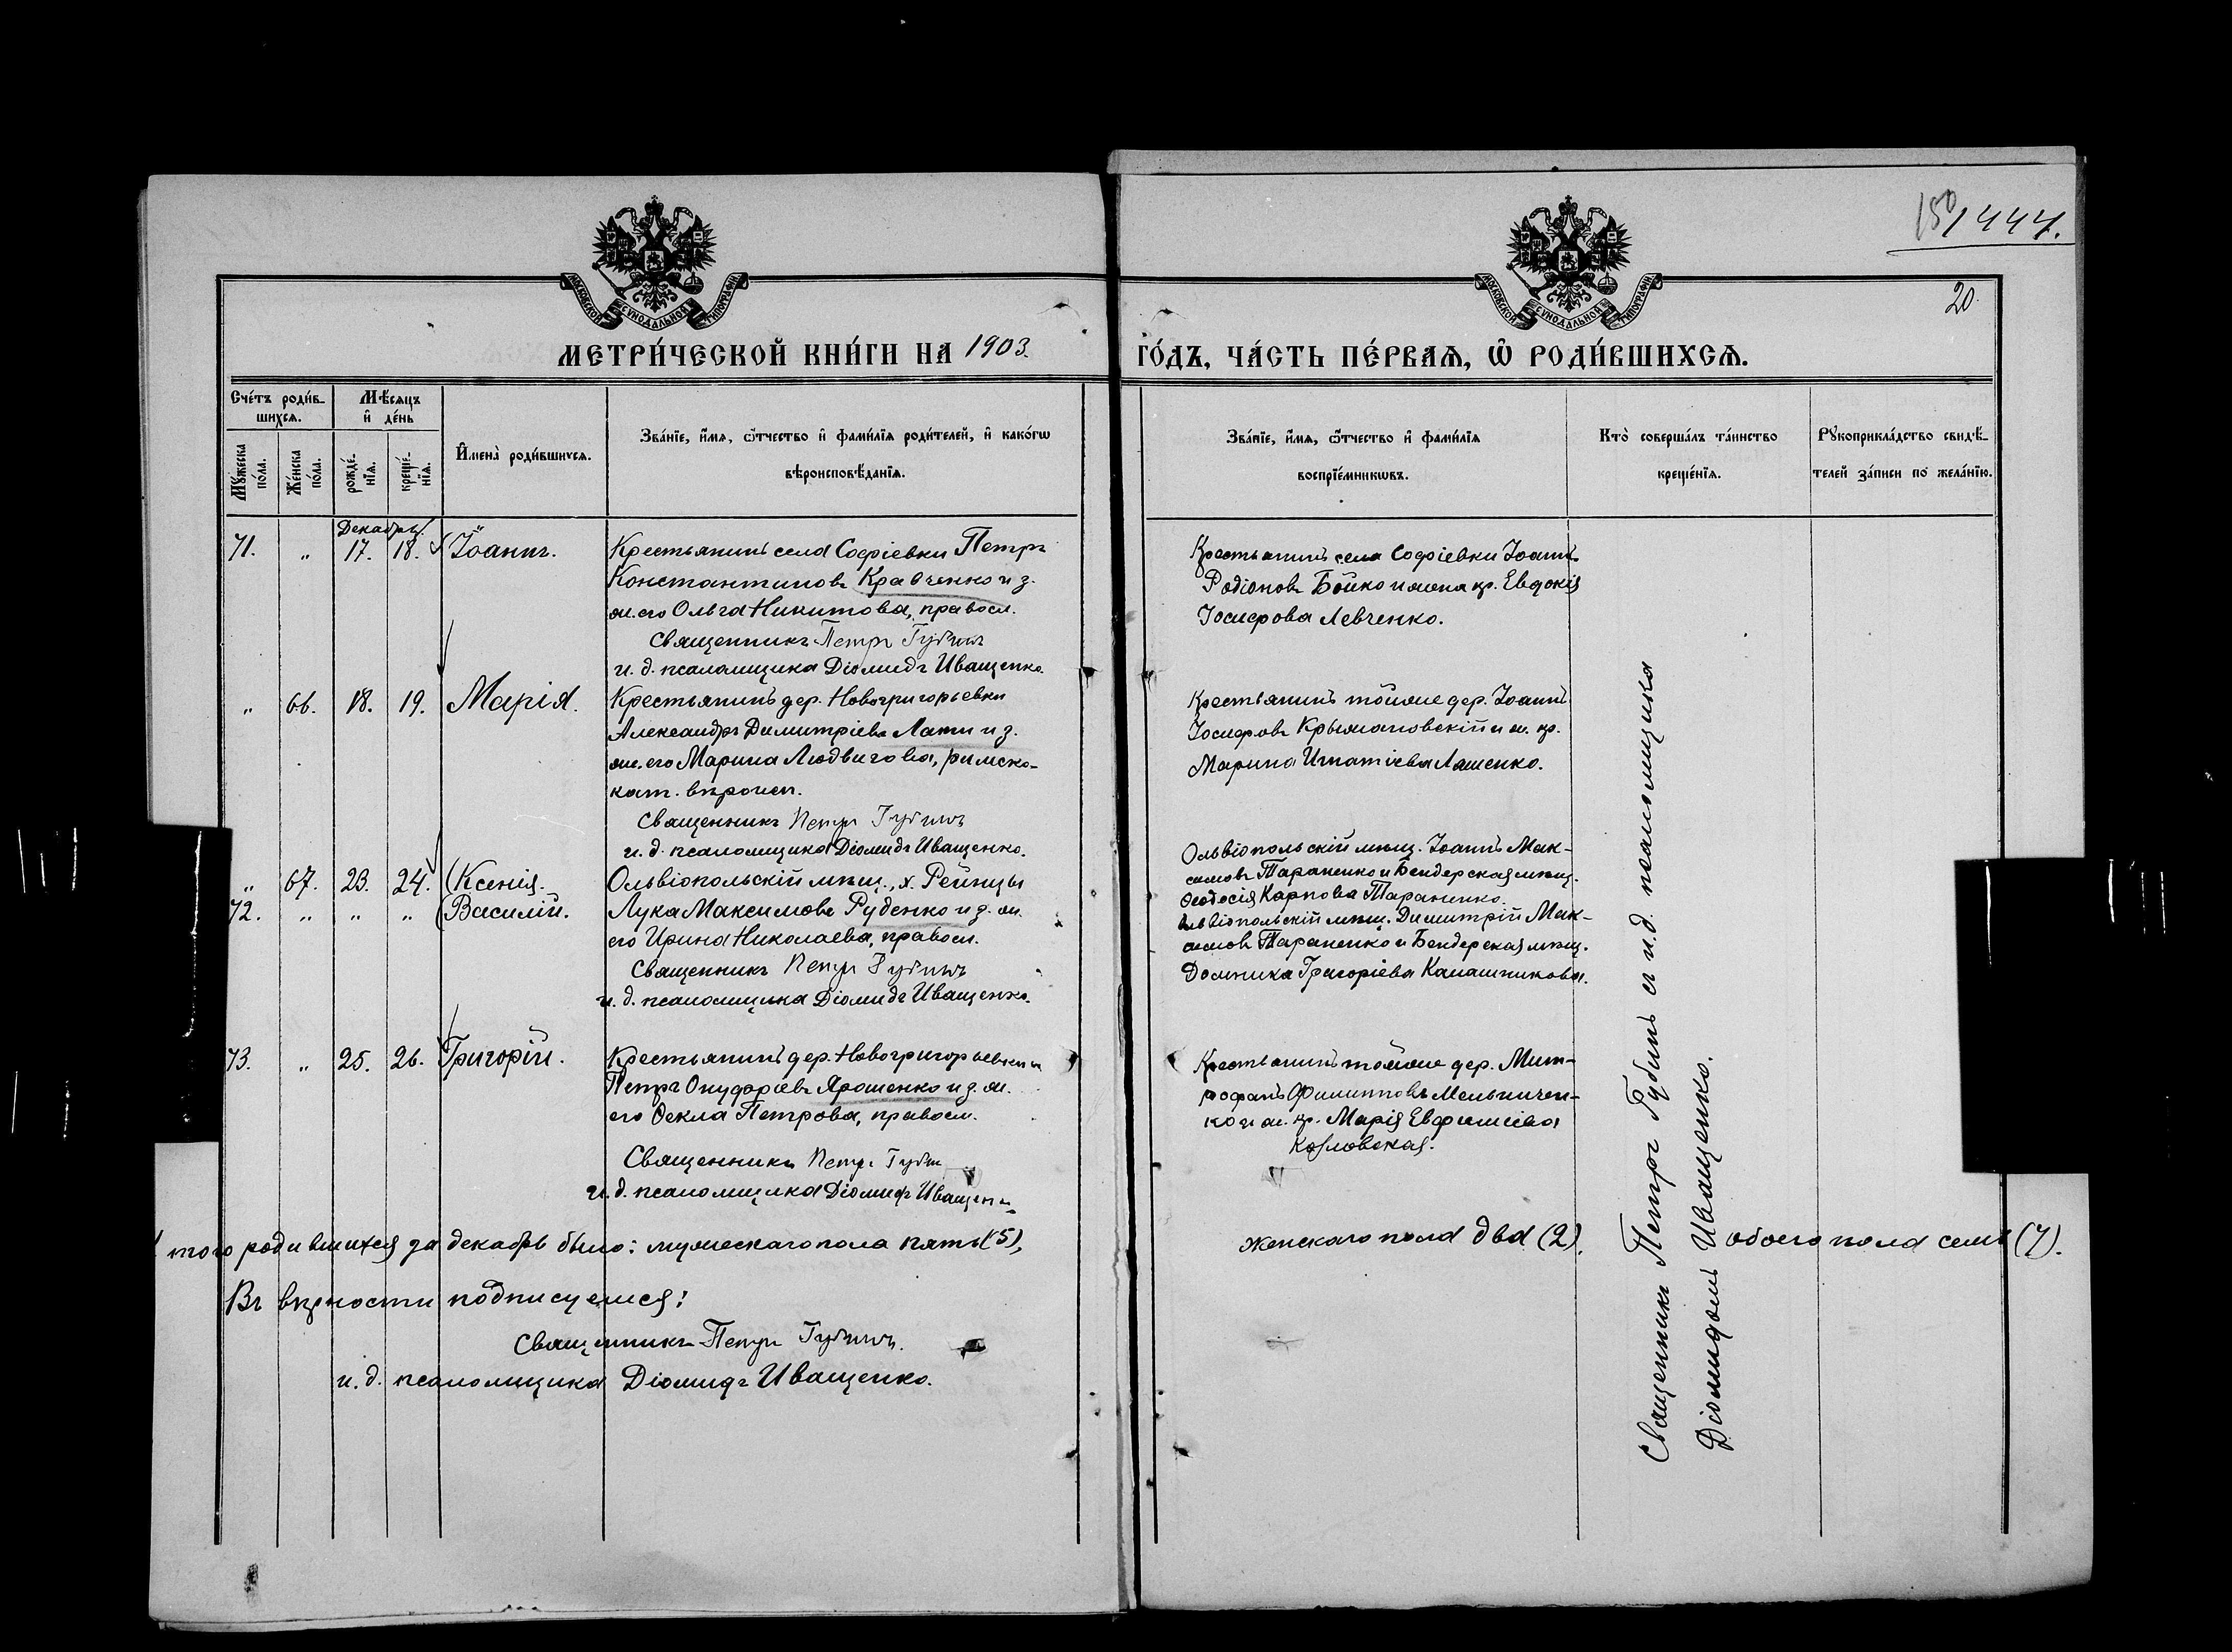 150/444.
20.
МОСКОВСКОЙ СѴНОДАЛЬНОЙ ТИПОГРАФІИ
МОСКОВСКОЙ СѴНОДАЛЬНОЙ ТИПОГРАФІИ
МЕТРИ́ЧЕСКОЙ КНИ́ГИ НА 1903. ГО́ДЪ, ЧА́СТЬ ПЕ́РВАЯ, Ѡ РОДИ́ВШИХСЯ.
Сче́тъ роди́в-
шихся.
Мѣ́сяцъ
и де́нь
Мꙋ́жеска
по́ла.
Же́нска
по́ла.
рожде́-
нїя.
креще́-
нїя.
Имена̀ роди́вшихся.
Зва́нїе, и́мя, ѻ́тчество и фами́лїя роди́телей, и како́гѡ
вѣроисповѣ́данїя.
Зва́нїе, и́мя, ѻ́тчество и фами́лїя
воспрїе́мникѡвъ.
Кто̀ соверша́лъ та́инство
креще́нїя.
Рꙋкоприкла́дство свидѣ́-
телей за́писи по жела́нїю.
Декабрь.
71. „ 17. 18. Іоаннъ. Крестьянинъ села Софіевки Петръ
Константиновъ Кравченко и з.
ж. его Ольга Никитова, правосл.
Священникъ Петръ Губинъ
и. д. псаломщика Діомидъ Иващенко.
Крестьянинъ села Софіевки Іоаннъ
Родіоновъ Бойко и жена кр. Евдокія
Іосифова Левченко.
„ 66. 18. 19. Марія. Крестьянинъ дер. Новогригорьевки
Александръ Димитріевъ Лати и з.
ж. его Марина Людвигова, римско-
кат. вѣроисп.
Священникъ Петръ Губинъ
и. д. псаломщика Діомидъ Иващенко.
Крестьянинъ тойже дер. Іоаннъ
Іосифовъ Крыжановскій и ж. кр.
Марина Игнатіева Ляшенко.
„ 67. 23. 24. Ксенія. Ольвіопольскій мѣщ., х. Рейнцы
72. „ „ „ Василій. Лука Максимовъ Руденко и з. ж.
его Ирина Николаева, правосл.
Священникъ Петръ Губинъ
и. д. псаломщика Діомидъ Иващенко.
Ольвіопольскій мѣщ. Іоаннъ Мак-
симовъ Тараненко и Бендерская мѣщ.
Ѳеодосія Карпова Тараненко.
Ольвіопольскій мѣщ. Димитрій Мак-
симовъ Тараненко и Бендерская мѣщ.
Домника Григоріева Калашникова.
73. „ 25. 26. Григорій. Крестьянинъ дер. Новогригорьевки
Петръ Онуфріевъ Ярошенко и з. ж.
его Ѳекла Петрова, правосл.
Священникъ Петръ Губинъ
и. д. псаломщика Діомидъ Иващен-
Крестьянинъ тойже дер. Мит-
рофанъ Филипповъ Мельничен-
ко и ж. кр. Марія Евфиміева
Козловская.
Священникъ Петръ Губинъ съ и.д. псаломщика
Діомидомъ Иващенко.
Итого родившихся за декабрь было: мужескаго пола пять (5), женскаго пола два (2). обоего пола семь (7).
Въ вѣрности подписуемся:
Священникъ Петръ Губинъ.
и. д. псаломщика Діомидъ Иващенко.